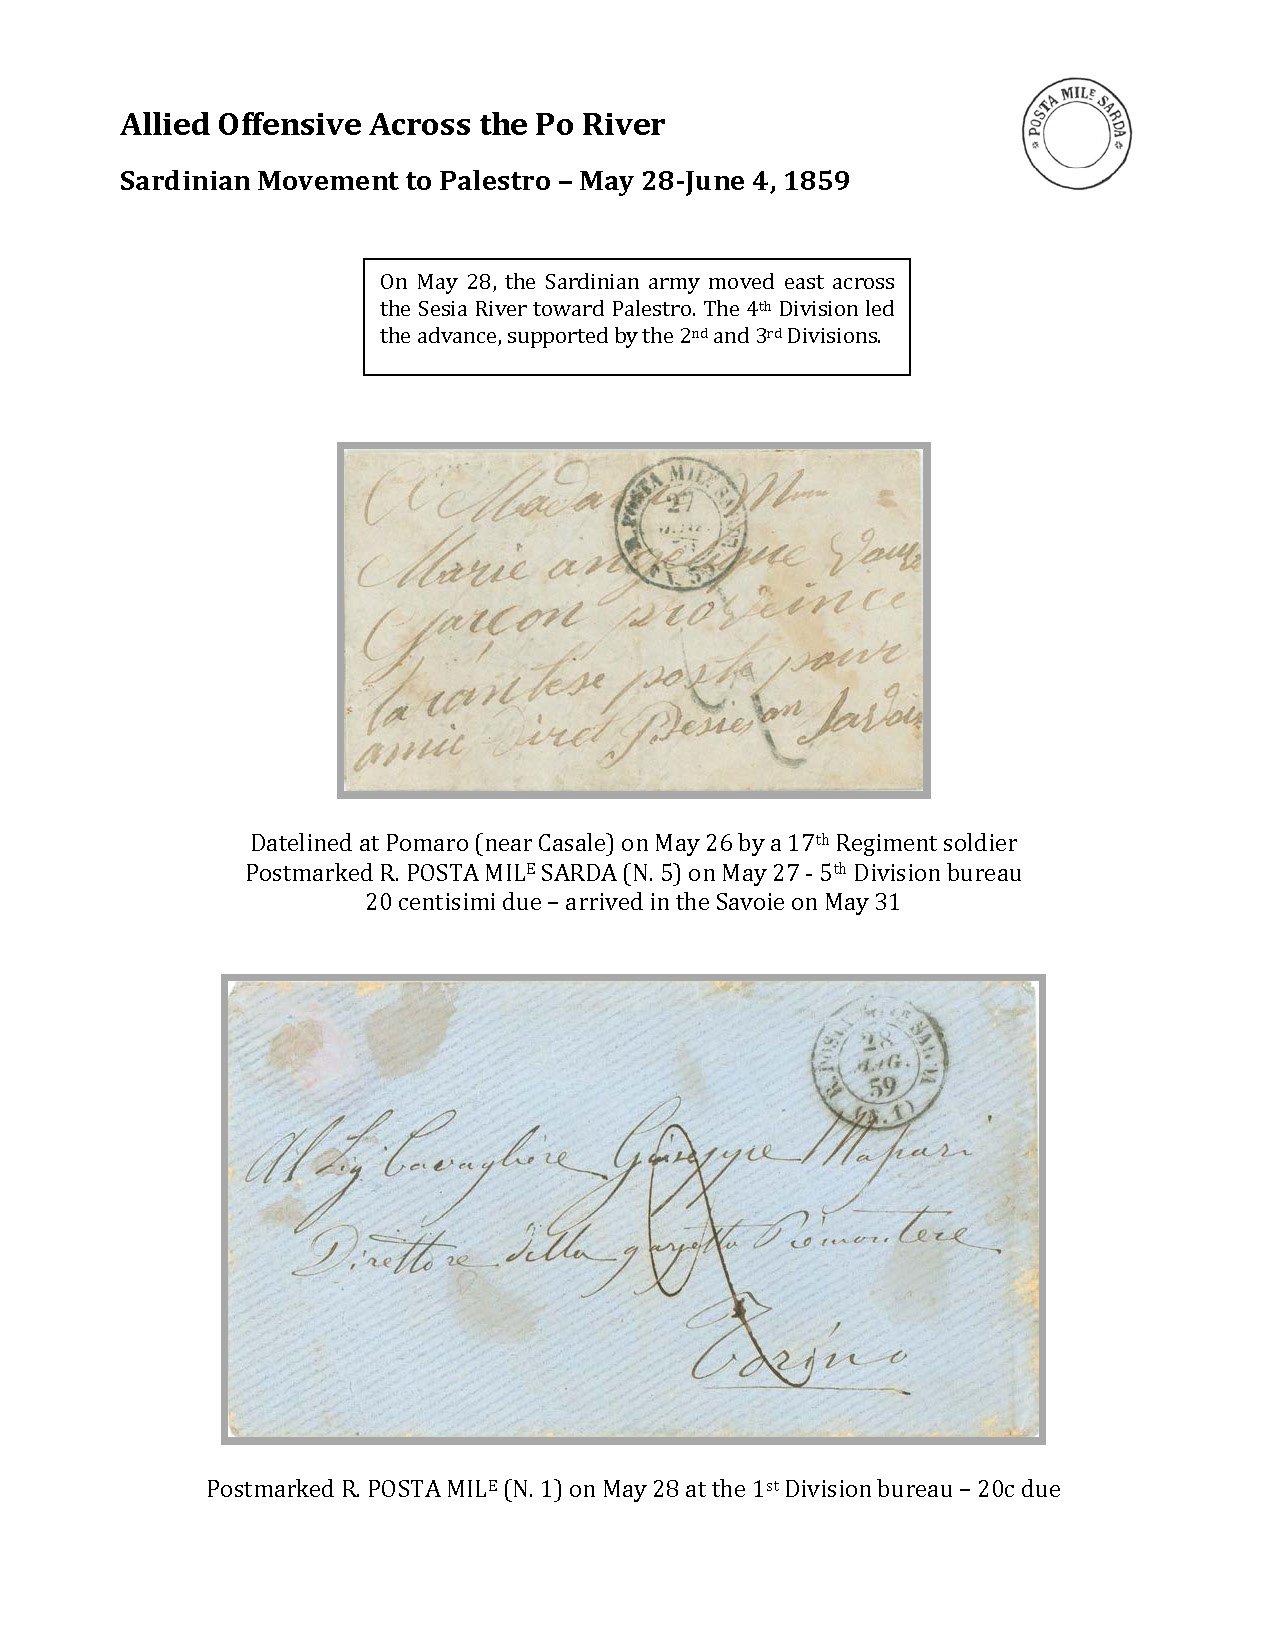 Allied Offensive Across the Po River
* POSTA MILE SARDA *
Sardinian Movement to Palestro – May 28-June 4, 1859
On May 28, the Sardinian army moved east across
the Sesia River toward Palestro. The 4th Division led
the advance, supported by the 2nd and 3rd Divisions.
R. POSTA MILE SARDA
27
(N. 5)
A Madame
Marie angelique
garcon proveince
la rantese poste pour
amie
Datelined at Pomaro (near Casale) on May 26 by a 17th Regiment soldier
Postmarked R. POSTA MILE SARDA (N. 5) on May 27 - 5th Division bureau
20 centisimi due – arrived in the Savoie on May 31
R. POSTA MILE SARDA
28
MAG.
59
(N. 1)
Al Sig Cavagliere Giuseppe
Direttore della gazzetta Piemontese
Torino
Postmarked R. POSTA MILE (N. 1) on May 28 at the 1st Division bureau – 20c due